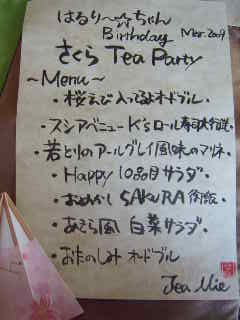 はるりー☆ちゃん
Birthday Mar. 2009
さくら Tea Party
～Menu～
・桜えび入ってるよオードブル・
・スシアベニュー K'sロール寿司大行進・
・若どりのアールグレイ風味のマリネ・
・Happy 10品目サラダ・
・SAKURA
・風 白菜サラダ・
・おたのしみ オードブル
Tea Mie